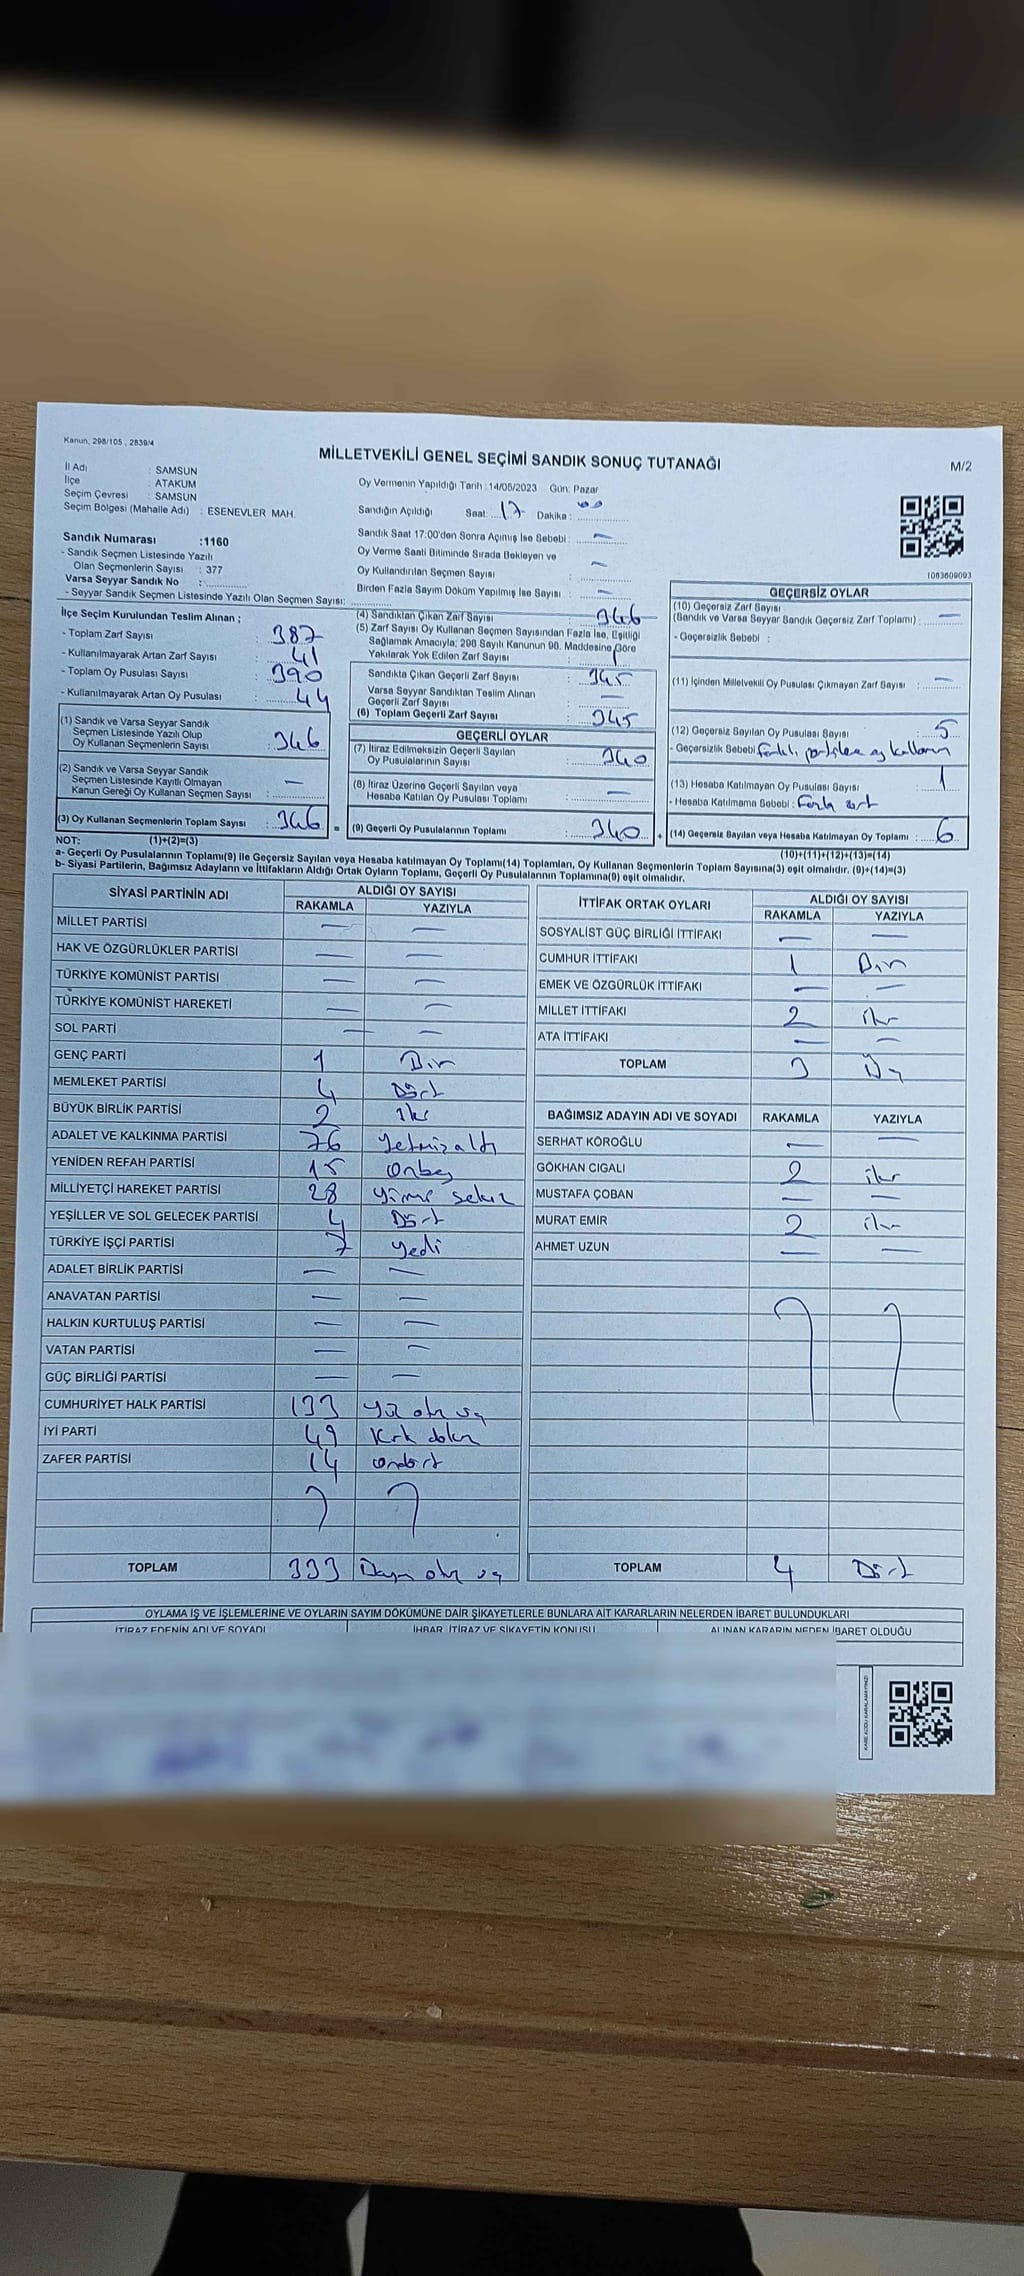 Kanun: 298/105 , 2839/4
MİLLETVEKİLİ GENEL SEÇİMİ SANDIK SONUÇ TUTANAĞI
M/2
İl Adı : SAMSUN
İlçe : ATAKUM
Seçim Çevresi : SAMSUN
Seçim Bölgesi (Mahalle Adı) : ESENEVLER MAH.
Oy Vermenin Yapıldığı Tarih : 14/05/2023 Gün: Pazar
Sandığın Açıldığı Saat: 17 Dakika : 00
Sandık Numarası :1160
- Sandık Seçmen Listesinde Yazılı
Olan Seçmenlerin Sayısı : 377
Varsa Seyyar Sandık No :
- Seyyar Sandık Seçmen Listesinde Yazılı Olan Seçmen Sayısı:
Sandık Saat 17:00'den Sonra Açımış İse Sebebi : —
Oy Verme Saati Bitiminde Sırada Bekleyen ve
Oy Kullandırılan Seçmen Sayısı : —
Birden Fazla Sayım Döküm Yapılmış İse Sayısı : —
1063609093
İlçe Seçim Kurulundan Teslim Alınan ;
- Toplam Zarf Sayısı : 387
- Kullanılmayarak Artan Zarf Sayısı : 41
- Toplam Oy Pusulası Sayısı : 390
- Kullanılmayarak Artan Oy Pusulası : 44
(1) Sandık ve Varsa Seyyar Sandık
Seçmen Listesinde Yazılı Olup
Oy Kullanan Seçmenlerin Sayısı : 346
(2) Sandık ve Varsa Seyyar Sandık
Seçmen Listesinde Kayıtlı Olmayan
Kanun Gereği Oy Kullanan Seçmen Sayısı : —
(3) Oy Kullanan Seçmenlerin Toplam Sayısı : 346 =
(4) Sandıktan Çıkan Zarf Sayısı : 346
(5) Zarf Sayısı Oy Kullanan Seçmen Sayısından Fazla İse, Eşitliği
Sağlamak Amacıyla; 298 Sayılı Kanunun 98. Maddesine Göre
Yakılarak Yok Edilen Zarf Sayısı : 1
Sandıkta Çıkan Geçerli Zarf Sayısı : 345
Varsa Seyyar Sandıktan Teslim Alınan
Geçerli Zarf Sayısı : —
(6) Toplam Geçerli Zarf Sayısı : 345
GEÇERLİ OYLAR
(7) İtiraz Edilmeksizin Geçerli Sayılan
Oy Pusulalarının Sayısı : 340
(8) İtiraz Üzerine Geçerli Sayılan veya
Hesaba Katılan Oy Pusulası Toplamı : —
(9) Geçerli Oy Pusulalarının Toplamı : 340 +
GEÇERSİZ OYLAR
(10) Geçersiz Zarf Sayısı
(Sandık ve Varsa Seyyar Sandık Geçersiz Zarf Toplamı) : —
- Geçersizlik Sebebi :
(11) İçinden Milletvekili Oy Pusulası Çıkmayan Zarf Sayısı : —
(12) Geçersiz Sayılan Oy Pusulası Sayısı : 5
- Geçersizlik Sebebi : Farklı partilere oy kullanım
(13) Hesaba Katılmayan Oy Pusulası Sayısı : 1
- Hesaba Katılmama Sebebi : Fazla zarf
(14) Geçersiz Sayılan veya Hesaba Katılmayan Oy Toplamı : 6
NOT: (1)+(2)=(3)
(10)+(11)+(12)+(13)=(14)
a- Geçerli Oy Pusulalarının Toplamı(9) ile Geçersiz Sayılan veya Hesaba katılmayan Oy Toplamı(14) Toplamları, Oy Kullanan Seçmenlerin Toplam Sayısına(3) eşit olmalıdır. (9)+(14)=(3)
b- Siyasi Partilerin, Bağımsız Adayların ve İttifakların Aldığı Ortak Oyların Toplamı, Geçerli Oy Pusulalarının Toplamına(9) eşit olmalıdır.
SİYASİ PARTİNİN ADI ALDIĞI OY SAYISI
RAKAMLA YAZIYLA
MİLLET PARTİSİ — —
HAK VE ÖZGÜRLÜKLER PARTİSİ — —
TÜRKİYE KOMÜNİST PARTİSİ — —
TÜRKİYE KOMÜNİST HAREKETİ — —
SOL PARTİ — —
GENÇ PARTİ 1 Bir
MEMLEKET PARTİSİ 4 Dört
BÜYÜK BİRLİK PARTİSİ 2 İki
ADALET VE KALKINMA PARTİSİ 76 Yetmişaltı
YENİDEN REFAH PARTİSİ 15 onbeş
MİLLİYETÇİ HAREKET PARTİSİ 28 Yirmi sekiz
YEŞİLLER VE SOL GELECEK PARTİSİ 4 Dört
TÜRKİYE İŞÇİ PARTİSİ 7 Yedi
ADALET BİRLİK PARTİSİ — —
ANAVATAN PARTİSİ — —
HALKIN KURTULUŞ PARTİSİ — —
VATAN PARTİSİ — —
GÜÇ BİRLİĞİ PARTİSİ — —
CUMHURİYET HALK PARTİSİ 133 Yüz otuz üç
İYİ PARTİ 49 Kırk dokuz
ZAFER PARTİSİ 14 ondört
TOPLAM 333 otuz üç
İTTİFAK ORTAK OYLARI ALDIĞI OY SAYISI
RAKAMLA YAZIYLA
SOSYALİST GÜÇ BİRLİĞİ İTTİFAKI — —
CUMHUR İTTİFAKI 1 Bir
EMEK VE ÖZGÜRLÜK İTTİFAKI — —
MİLLET İTTİFAKI 2 iki
ATA İTTİFAKI — —
TOPLAM 3 Üç
BAĞIMSIZ ADAYIN ADI VE SOYADI RAKAMLA YAZIYLA
SERHAT KÖROĞLU — —
GÖKHAN CIGALI 2 iki
MUSTAFA ÇOBAN — —
MURAT EMİR 2 iki
AHMET UZUN — —
TOPLAM 4 Dört
OYLAMA İŞ VE İŞLEMLERİNE VE OYLARIN SAYIM DÖKÜMÜNE DAİR ŞİKAYETLERLE BUNLARA AİT KARARLARIN NELERDEN İBARET BULUNDUKLARI
İTİRAZ EDENİN ADI VE SOYADI İHBAR, İTİRAZ VE ŞİKAYETİN KONUSU ALINAN KARARIN NEDEN İBARET OLDUĞU